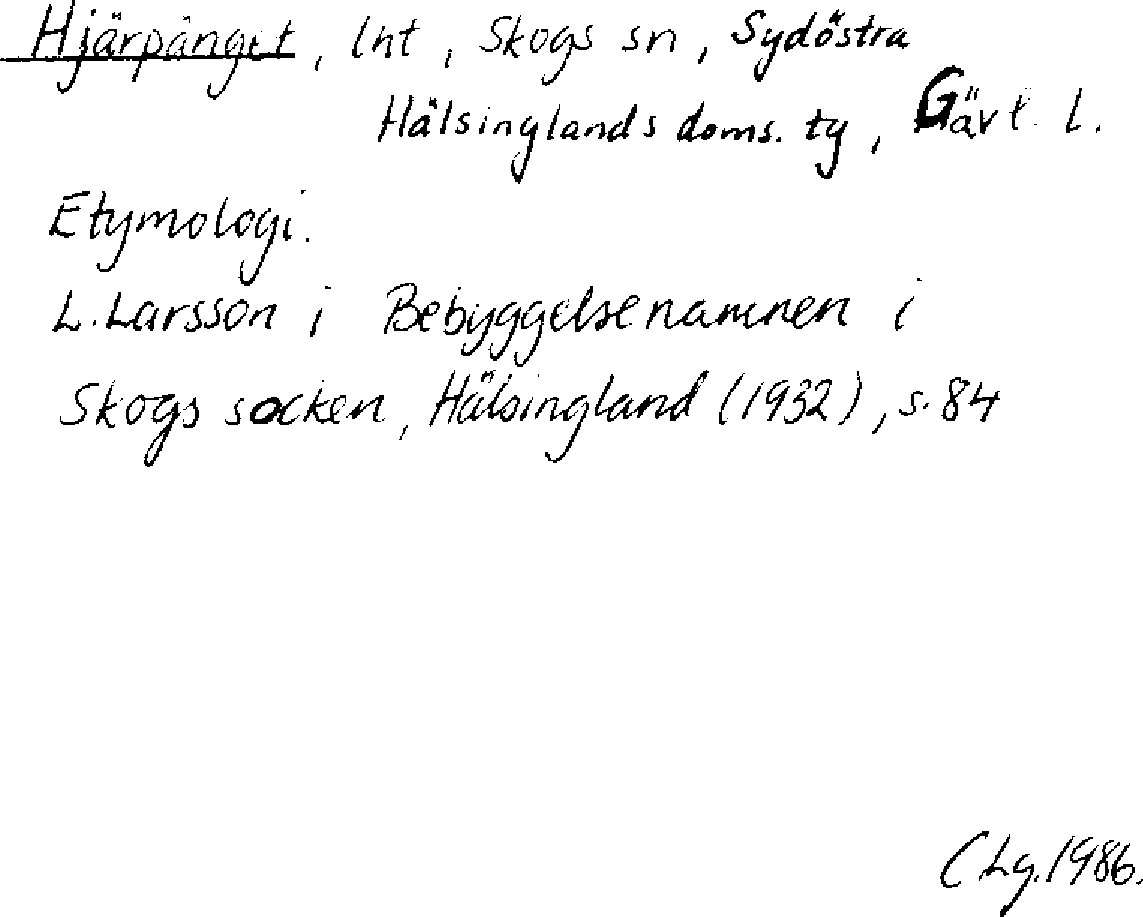 Hjärpänget, lht, Skogs sn, Sydöstra
Hälsinglands doms. tg, Gävl. l.
Etymologi.
L. Larsson i Bebyggelsenamnen i
Skogs socken, Hälsingland (1932), s. 84
CLg. 1986.